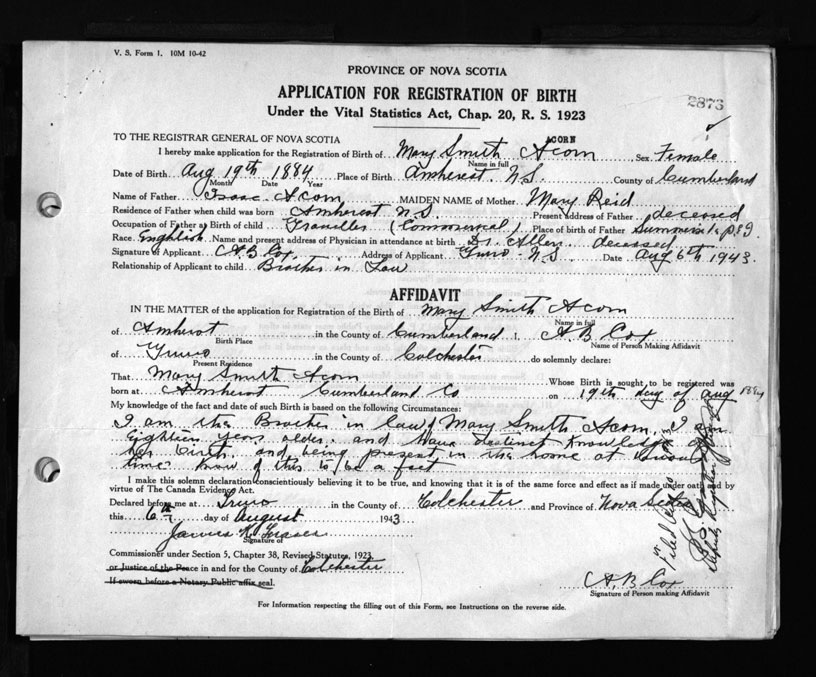 V. S. Form 1. 10M 10-42
PROVINCE OF NOVA SCOTIA
APPLICATION FOR REGISTRATION OF BIRTH
2873
Under the Vital Statistics Act, Chap. 20, R. S. 1923
TO THE REGISTRAR GENERAL OF NOVA SCOTIA
ACORN
I hereby make application for the Registration of Birth of Mary Smith Acorn Sex Female
Name in full
Date of Birth Aug 19th 1884 Place of Birth Amherst N.S. County of Cumberland
Month Date Year
Name of Father Isaac Acorn MAIDEN NAME of Mother Mary Reid
Residence of Father when child was born Amherst N S. Present address of Father deceased
Occupation of Father at Birth of child Traveller (Commercial) Place of birth of Father Summerside
Race English Name and present address of Physician in attendance at birth Dr. Allen deceased
Signature of Applicant A B Cox Address of Applicant Truro N.S. Date Aug 6th 1943.
Relationship of Applicant to child Brother in Law
AFFIDAVIT
IN THE MATTER of the application for Registration of the Birth of Mary Smith Acorn
Name in full
of Amherst in the County of Cumberland I, A B Cox
Birth Place Name of Person Making Affidavit
of Truro in the County of Colchester do solemnly declare:
Present Residence
That Mary Smith Acorn Whose Birth is sought to be registered was
born at Amherst Cumberland Co on 19th day of Aug 1884
My knowledge of the fact and date of such Birth is based on the following Circumstances:
I am the Brother in law of Mary Smith Acorn. I am
Eighteen Years older. and have distinct knowledge of
her birth. and being present in the home at
time know of this to be a fact
I make this solemn declaration conscientiously believing it to be true, and knowing that it is of the same force and effect as if made under oath and by
virtue of The Canada Evidence Act.
Declared before me at Truro in the County of Colchester and Province of Nova Scotia
this 6th day of August 1943
James Fraser
Signature of
Commissioner under Section 5, Chapter 38, Revised Statutes, 1923
or Justice of the Peace in and for the County of Colchester
If sworn before a Notary Public affix seal.
A B Cox
Signature of Person making Affidavit
For Information respecting the filling out of this Form, see Instructions on the reverse side.
Filed